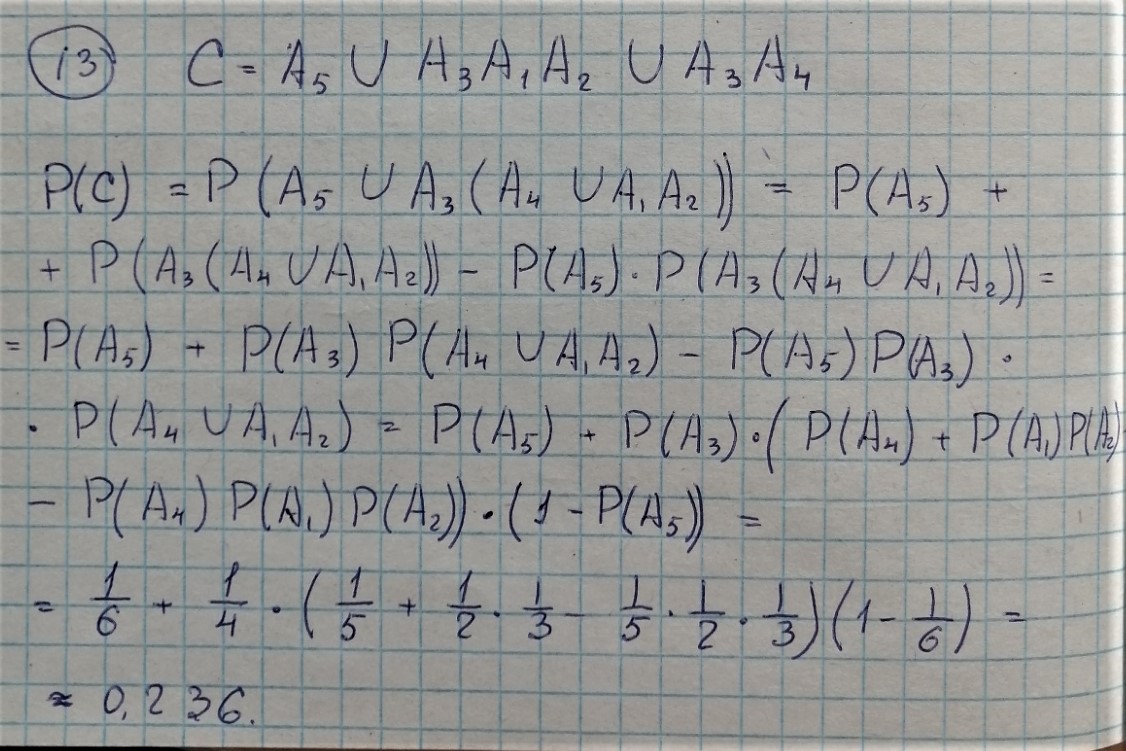 13) C = A₅ ∪ A₃A₁A₂ ∪ A₃A₄
P(C) = P(A₅ ∪ A₃(A₄ ∪ A₁A₂)) = P(A₅) +
+ P(A₃(A₄ ∪ A₁A₂)) − P(A₅)·P(A₃(A₄ ∪ A₁A₂)) =
= P(A₅) + P(A₃) P(A₄ ∪ A₁A₂) − P(A₅)P(A₃) ·
· P(A₄ ∪ A₁A₂) = P(A₅) + P(A₃)·(P(A₄) + P(A₁)P(A₂)
− P(A₄)P(A₁)P(A₂))·(1 − P(A₅)) =
= 1/6 + 1/4 · (1/5 + 1/2 · 1/3 − 1/5 · 1/2 · 1/3)(1 − 1/6) =
≈ 0,236.